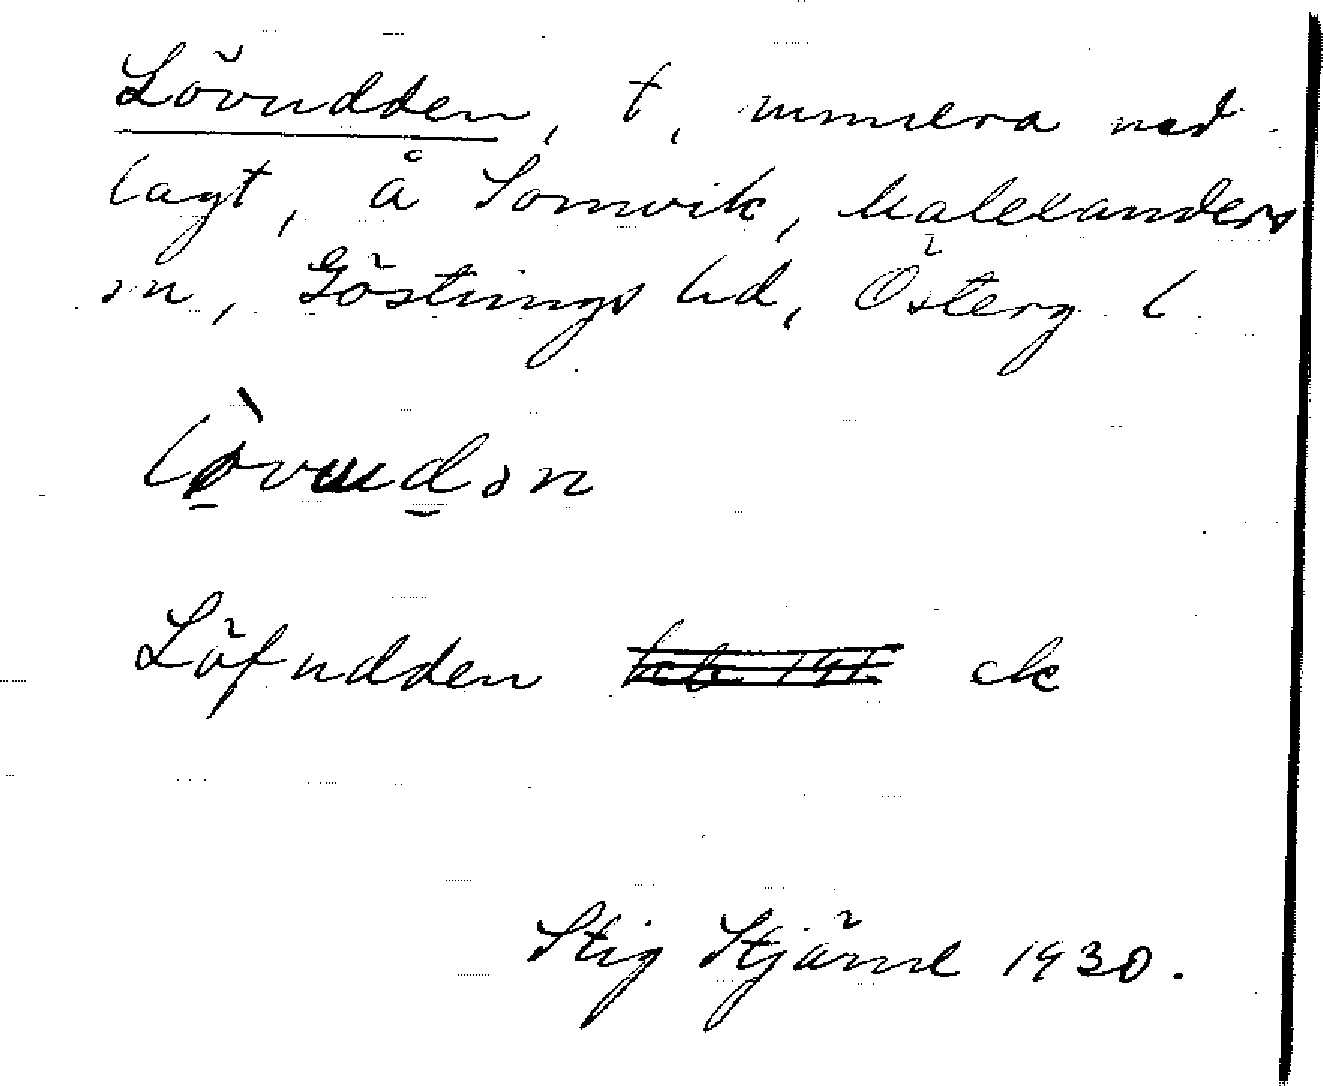 Lövudden, t, numera ned-
lagt, å Somvik, Malexanders
sn, Göstrings hd, Österg l.
Löfudden ck
Stig Stjärne 1930.